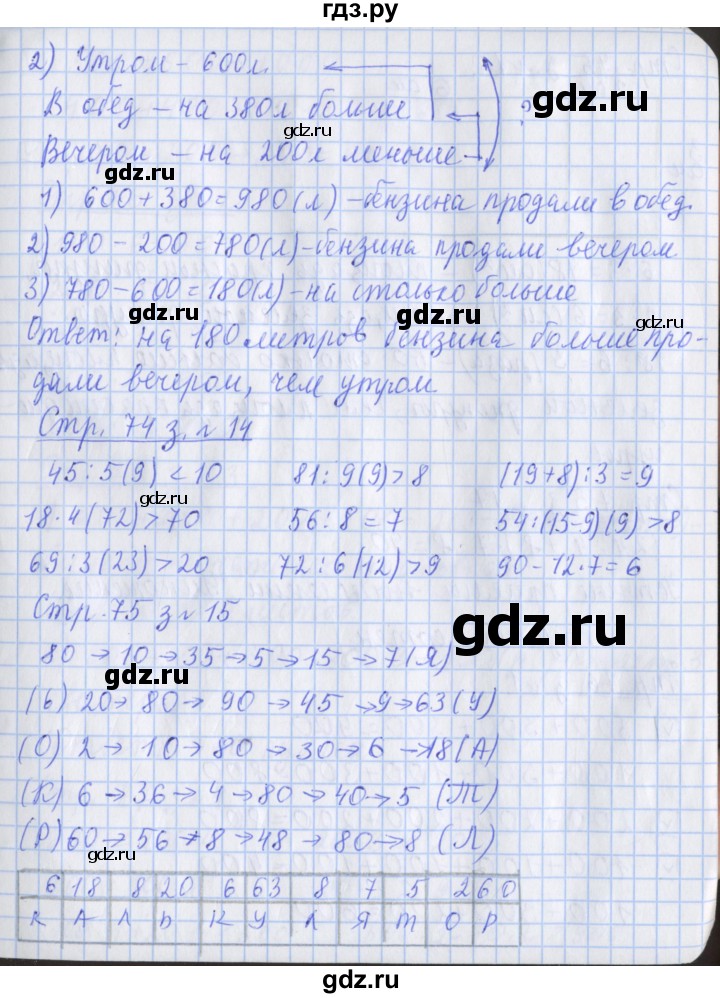 гдз.ру
2) Утром – 600л.
В обед – на 380л больше
?
Вечером – на 200л меньше
1) 600 + 380 = 980 (л) – бензина продали в обед.
2) 980 – 200 = 780 (л) – бензина продали вечером
3) 780 – 600 = 180 (л) – на столько больше
Ответ: на 180 литров бензина больше про-
дали вечером, чем утром.
Стр. 74 з. № 14
45 : 5 (9) < 10 81 : 9 (9) > 8 (19 + 8) : 3 = 9
18 · 4 (72) > 70 56 : 8 = 7 54 : (15 – 9) (9) > 8
69 : 3 (23) > 20 72 : 6 (12) > 9 90 – 12 · 7 = 6
Стр. 75 з № 15
80 → 10 → 35 → 5 → 15 → 7 (Я)
(Ь) 20 → 80 → 90 → 45 → 9 → 63 (У)
(О) 2 → 10 → 80 → 30 → 6 → 18 (А)
(К) 6 → 36 → 4 → 80 → 40 → 5 (Т)
(Р) 60 → 56 → 8 → 48 → 80 → 8 (Л)
6 18 8 20 6 63 8 7 5 2 60
К А Л Ь К У Л Я Т О Р
gdz.ru
gdz.ru
gdz.ru
gdz.ru
gdz.ru
gdz.ru
gdz.ru
gdz.ru
gdz.ru
gdz.ru
gdz.ru
gdz.ru
gdz.ru
gdz.ru